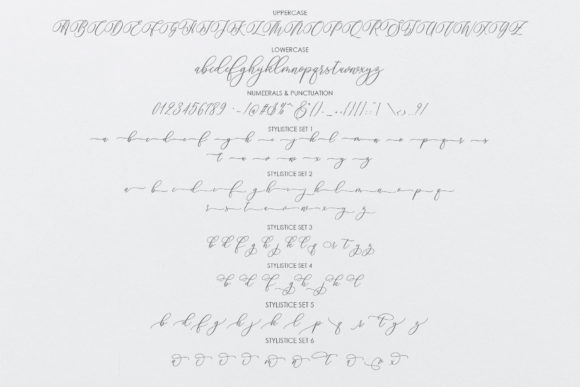 UPPERCASE
ABCDEFGHIJKLMNOPQRSTUVWXYZ
LOWERCASE
abcdefghijklmnopqrstuvwxyz
NUMEERALS & PUNCTUATION
0123456789
STYLISTICE SET 1
a b c d e f g h i j k l m n o p q r s
t u v w x y z
STYLISTICE SET 2
a b c d e f g h i j k l m n o p q
r s t u v w x y z
STYLISTICE SET 3
b d f g h j k l
STYLISTICE SET 4
b d f g h j k l
STYLISTICE SET 5
b d f g h j k l p
STYLISTICE SET 6